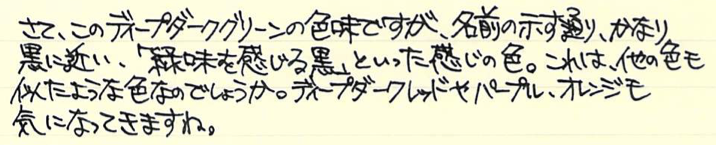 さて、このディープダークグリーンの色味ですが、名前の示す通り、かなり
黒に近い、「緑味を感じる黒」といった感じの色。これは、他の色も
似たような色なのでしょうか。ディープダークレッドやパープル、オレンジも
気になってきますね。